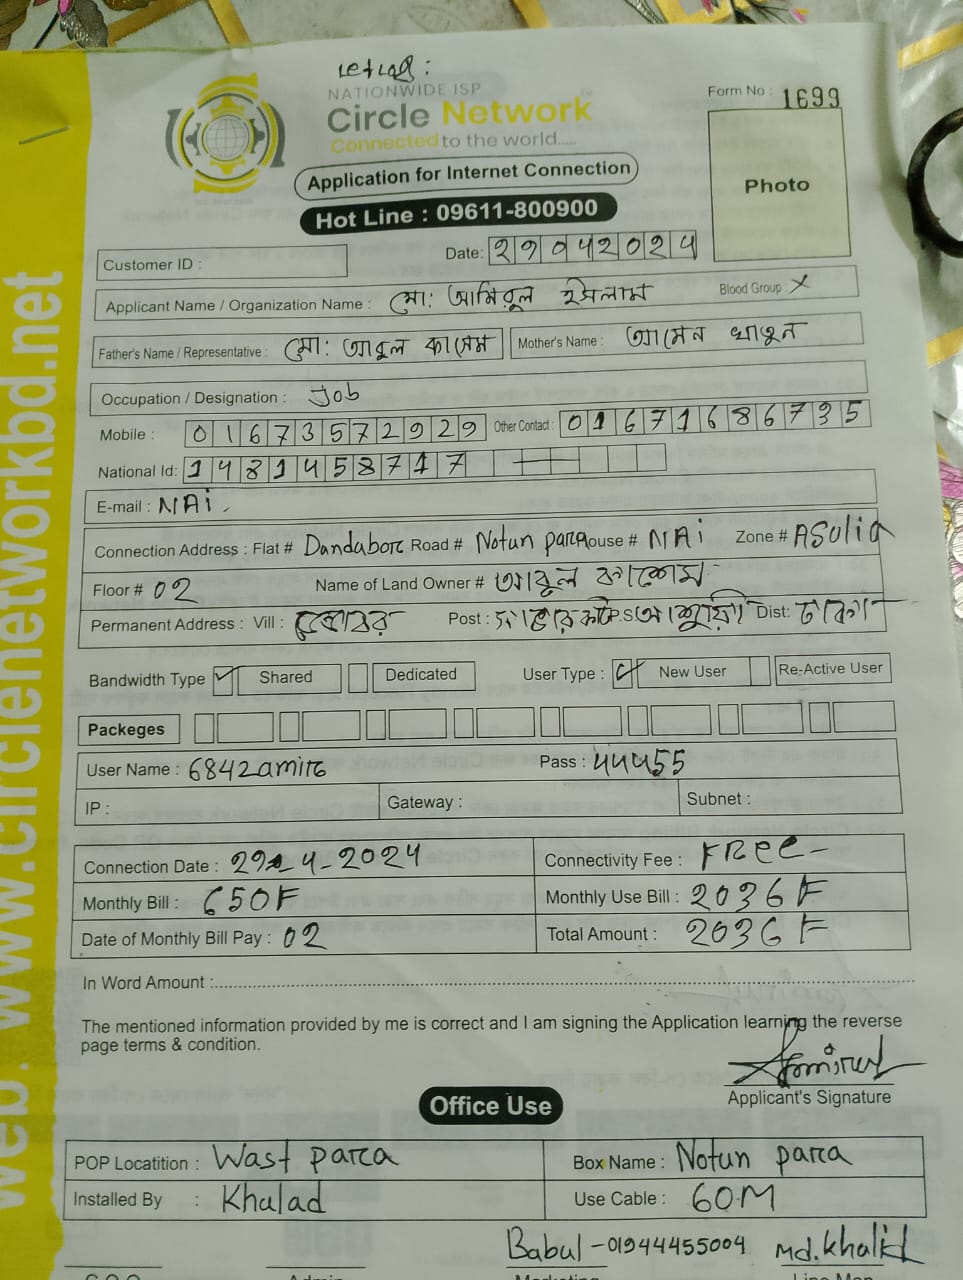 NATIONWIDE ISP
Circle Network
Connected to the world.....
Form No : 1699
Photo
Application for Internet Connection
Hot Line : 09611-800900
Customer ID :
Date: 29042024
Applicant Name / Organization Name : মো: আমিরুল ইসলাম Blood Group : X
Father's Name / Representative : মো: আবুল কাসেম Mother's Name : আমেন খাতুন
Occupation / Designation : Job
Mobile : 01673572929 Other Contact : 01671686735
National Id: 1481458717
E-mail : NAi
Connection Address : Flat # Dandabor Road # Notun para House # NAi Zone # ASulia
Floor # 02 Name of Land Owner # আবুল কাশেম
Permanent Address : Vill : Post : P.S Dist: ঢাকা
Bandwidth Type Shared Dedicated User Type : New User Re-Active User
Packeges
User Name : 6842amir Pass : 44455
IP : Gateway : Subnet :
Connection Date : 29-4-2024 Connectivity Fee : FRee
Monthly Bill : 650 Monthly Use Bill : 2036
Date of Monthly Bill Pay : 02 Total Amount : 2036
In Word Amount :
The mentioned information provided by me is correct and I am signing the Application learning the reverse
page terms & condition.
Amirul
Applicant's Signature
Office Use
POP Locatition : Wast para Box Name : Notun para
Installed By : Khalad Use Cable : 60M
Babul -01944455004 md.khalid
web: www.circlenetworkbd.net